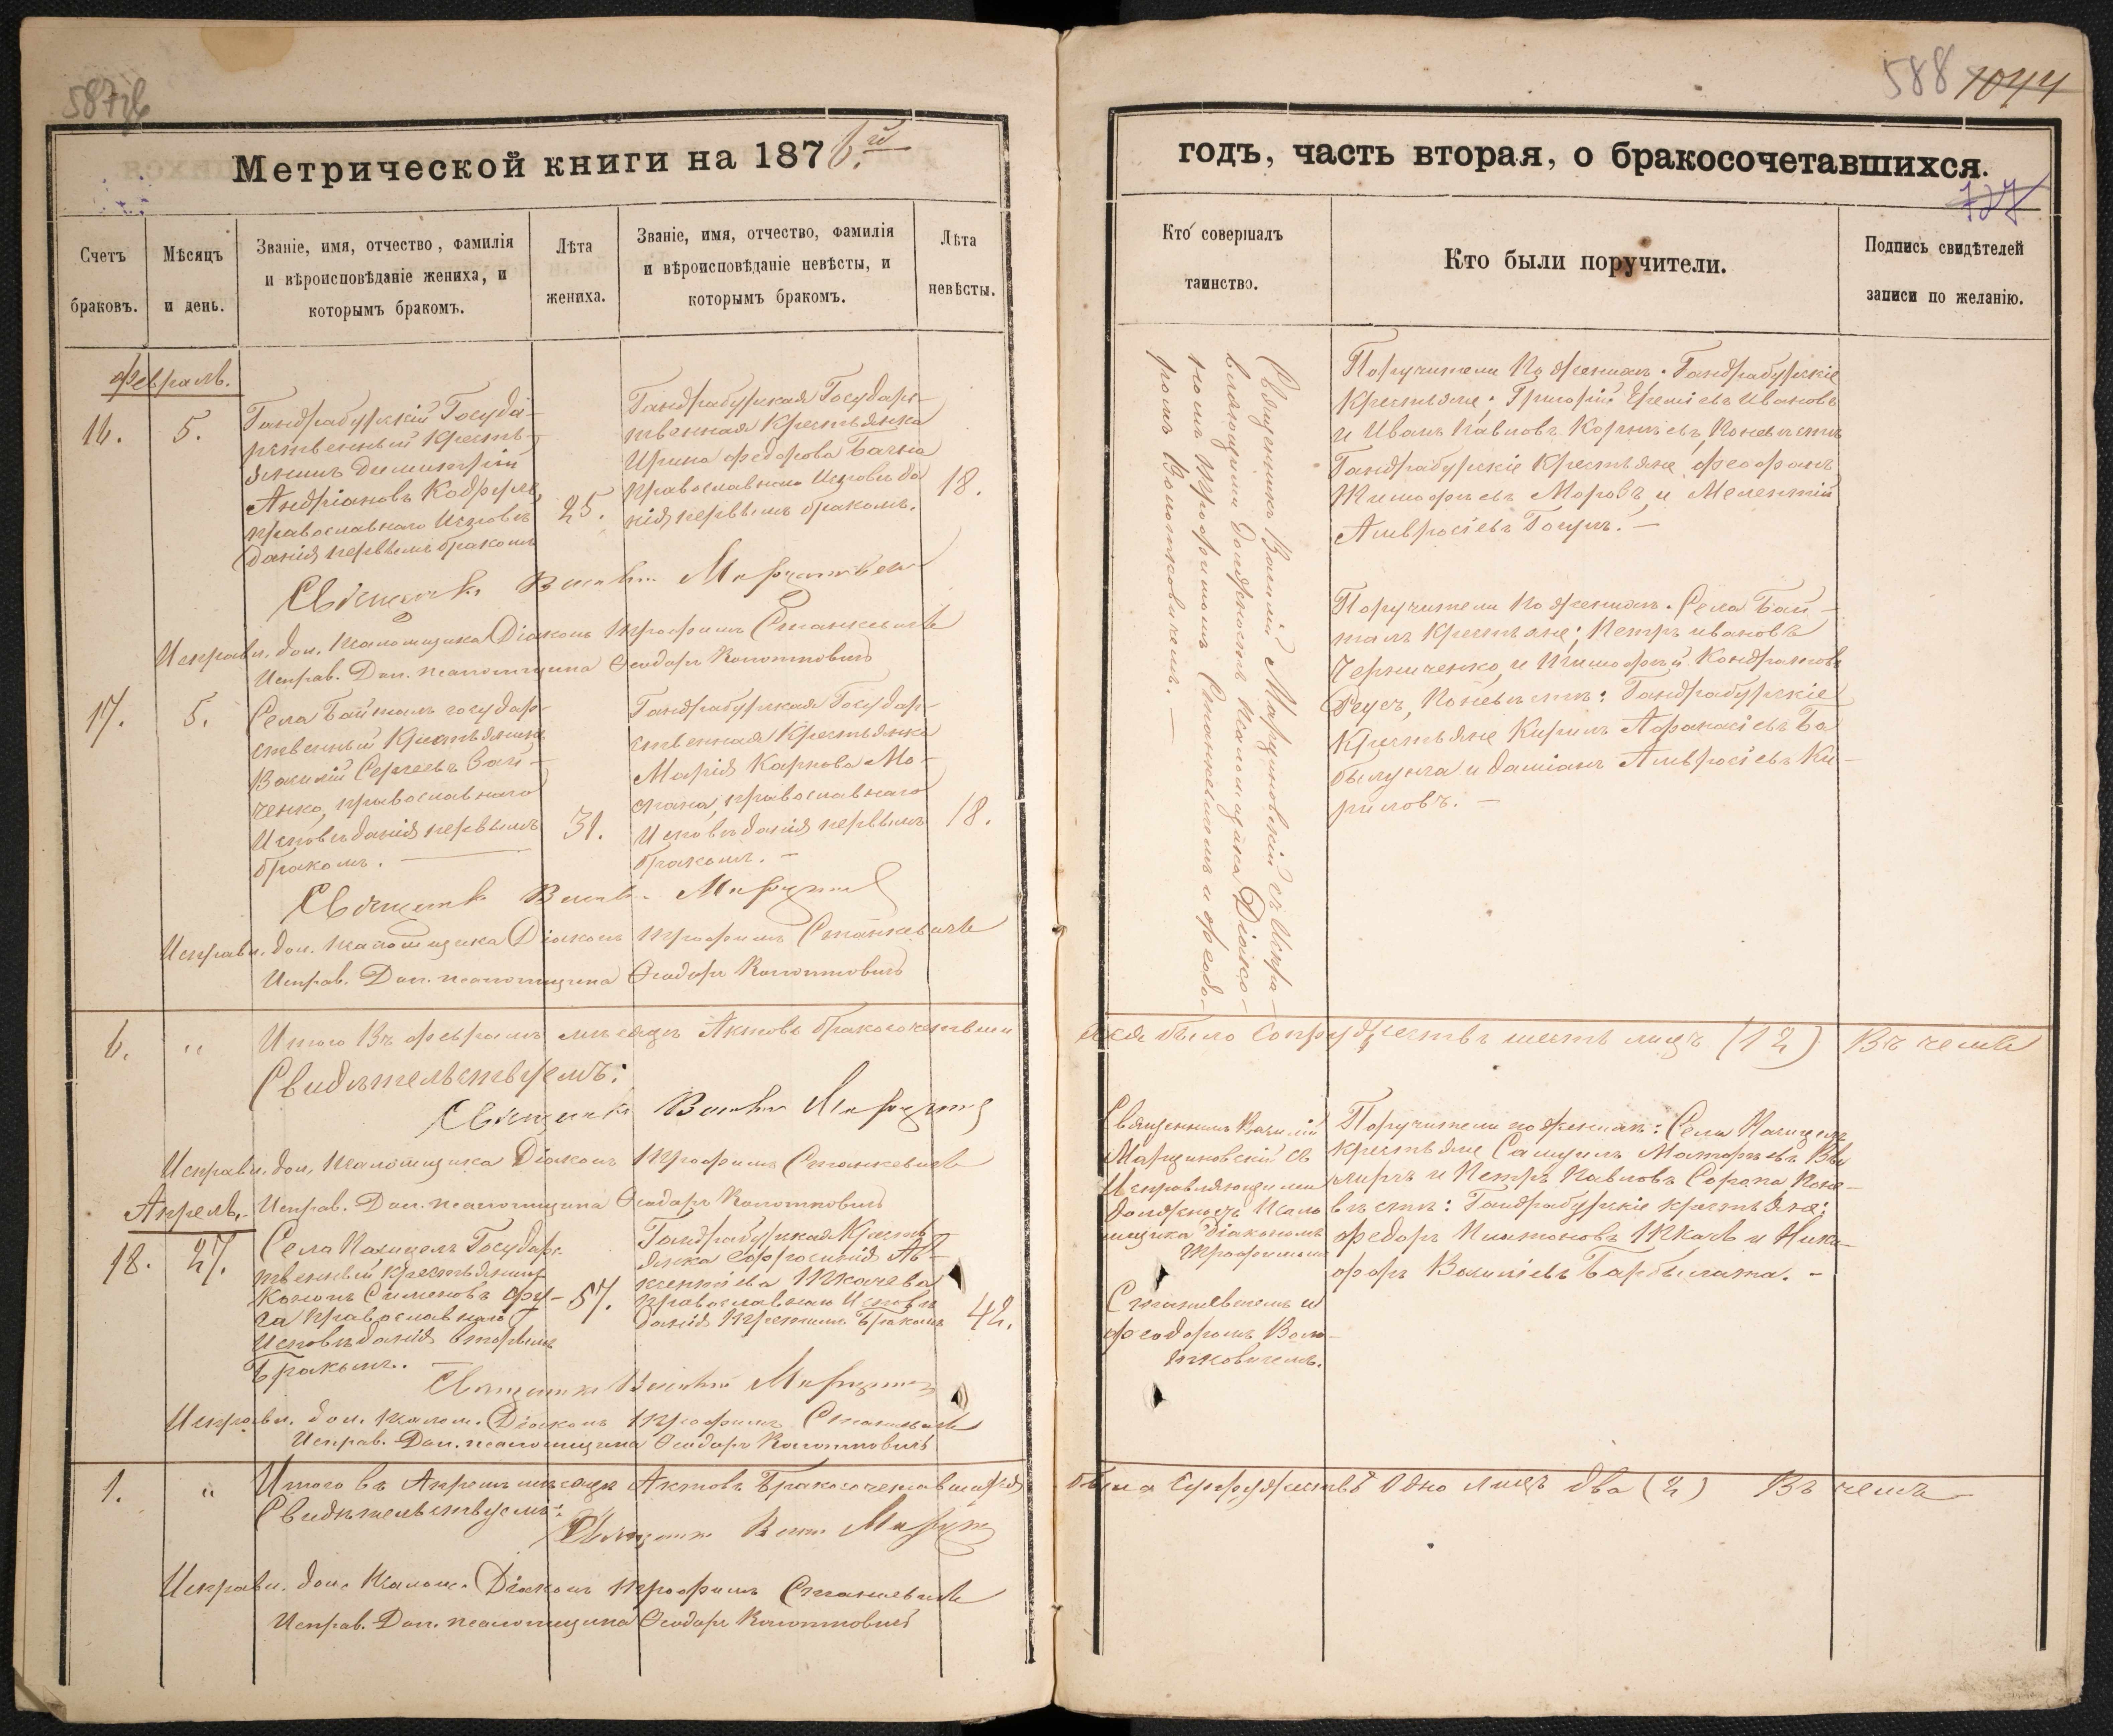 587 об
588 1044
Метрической книги на 1876.й
годъ, часть вторая, о бракосочетавшихся.
727
Счетъ браковъ.
Мѣсяцъ и день.
Званіе, имя, отчество, фамилія
и вѣроисповѣданіе жениха, и
которымъ бракомъ.
Лѣта жениха.
Званіе, имя, отчество, фамилія
и вѣроисповѣданіе невѣсты, и
которымъ бракомъ.
Лѣта невѣсты.
Кто совершалъ таинство.
Кто были поручители.
Подпись свидѣтелей
записи по желанію.
Февраль.
16.
5.
Гандрабурскій Госуда-
рственный Кресть-
янинъ Димитрій
Андріановъ
православнаго Исповѣ
данія первымъ бракомъ
25.
Гандрабурская Государс-
твенная Крестьянка
Ирина Федорова Бачка
Православнаго Исповѣда
нія первымъ бракомъ.
18.
Священникъ Василій Марциновскій съ Испра-
вляющими Должность Псаломщика Діако-
номъ Трофимомъ Станкевичемъ и Феодо-
ромъ Волотковичемъ. —
Поручители По женихѣ. Гандрабурскіе
Крестьяне; Григорій Еремѣевъ Ивановъ
и Иванъ Павловъ Корнѣевъ, По невѣстѣ
Гандрабурскіе Крестьяне, Феофанъ
Тимофѣевъ Морозъ, и Мелентій
Амвросіевъ Гогул. —
Священникъ Василій Марциновскій
Исправл. дол. псаломщика Діаконъ Трофимъ Станкевичъ
Исправ. Дол. псаломщика Ѳеодоръ Волотковичъ
17.
5.
Села Байталъ государ-
ственный Крестьянинъ
Василій Сергеевъ Зай-
ченко, православнаго
Исповѣданія первымъ
бракомъ. —
31.
Гандрабурская Государ-
ственная Крестьянка
Марія Карпова Мо-
православнаго
Исповѣданія первымъ
бракомъ. —
18.
Поручители по женихѣ. Села Бай-
талъ Крестьяне; Петръ Ивановъ
Черниченко, и Тимофѣй Кондратовъ
Руссъ, По невѣстѣ: Гандрабурскіе
Крестьяне Кирилъ Афанасіевъ Ба
былунга и Даміанъ Амвросіевъ Ки-
риловъ. —
Священникъ Василій Марцин
Исправл. дол. псаломщика Діаконъ Трофимъ Станкевичъ
Исправ. Дол. псаломщика Ѳеодоръ Волотковичъ
6. " Итого Въ февралѣ мѣсяцѣ Актовъ бракосочетавши
хся было Супружествъ шесть лицъ (12) Въ чемъ
Свидѣтельствуемъ:
Священникъ Василій Марцин
Исправл. дол. псаломщика Діаконъ Трофимъ Станкевичъ
Исправ. Дол. псаломщика Ѳеодоръ Волотковичъ
Апрель.
18.
27.
Села Пасицелъ Государс
твенный крестьянинъ
Кононъ Симеоновъ Фу-
га Православнаго
Исповѣданія вторымъ
Бракомъ.
57.
Гандрабурская Кресть
янка Ефросинія Ав-
ксентіева Ткачева
православнаго Исповѣ
данія Третимъ Бракомъ
42.
Священникъ Василій
Марциновскій съ
Исправляющими
должность Псало
мщика Діакономъ
Трофимомъ
Станкевичемъ и
Феодоромъ Воло-
тковичемъ.
Поручители по женихѣ: Села Пасицелъ
крестьяне Самуилъ Матфѣевъ
и Петръ Павловъ Сорока По не-
вѣстѣ: Гандрабурскіе крестьяне:
Федоръ Платоновъ Ткачъ и Ники-
форъ Василіевъ Барбылата. —
Священникъ Василій Марцин
Исправл. дол. псалом. Діаконъ Трофимъ Станкевичъ
Исправ. Дол. псаломщика Ѳеодоръ Волотковичъ
1. " Итого въ Апрелѣ мѣсяцѣ Актовъ Бракосочетавшихся
было Супружествъ Одно лицъ два (2) Въ чемъ
Свидѣтельствуемъ:
Священникъ Васил Марцин
Исправл. дол. псалом. Діаконъ Трофимъ Станкевичъ
Исправ. Дол. псаломщика Ѳеодоръ Волотковичъ